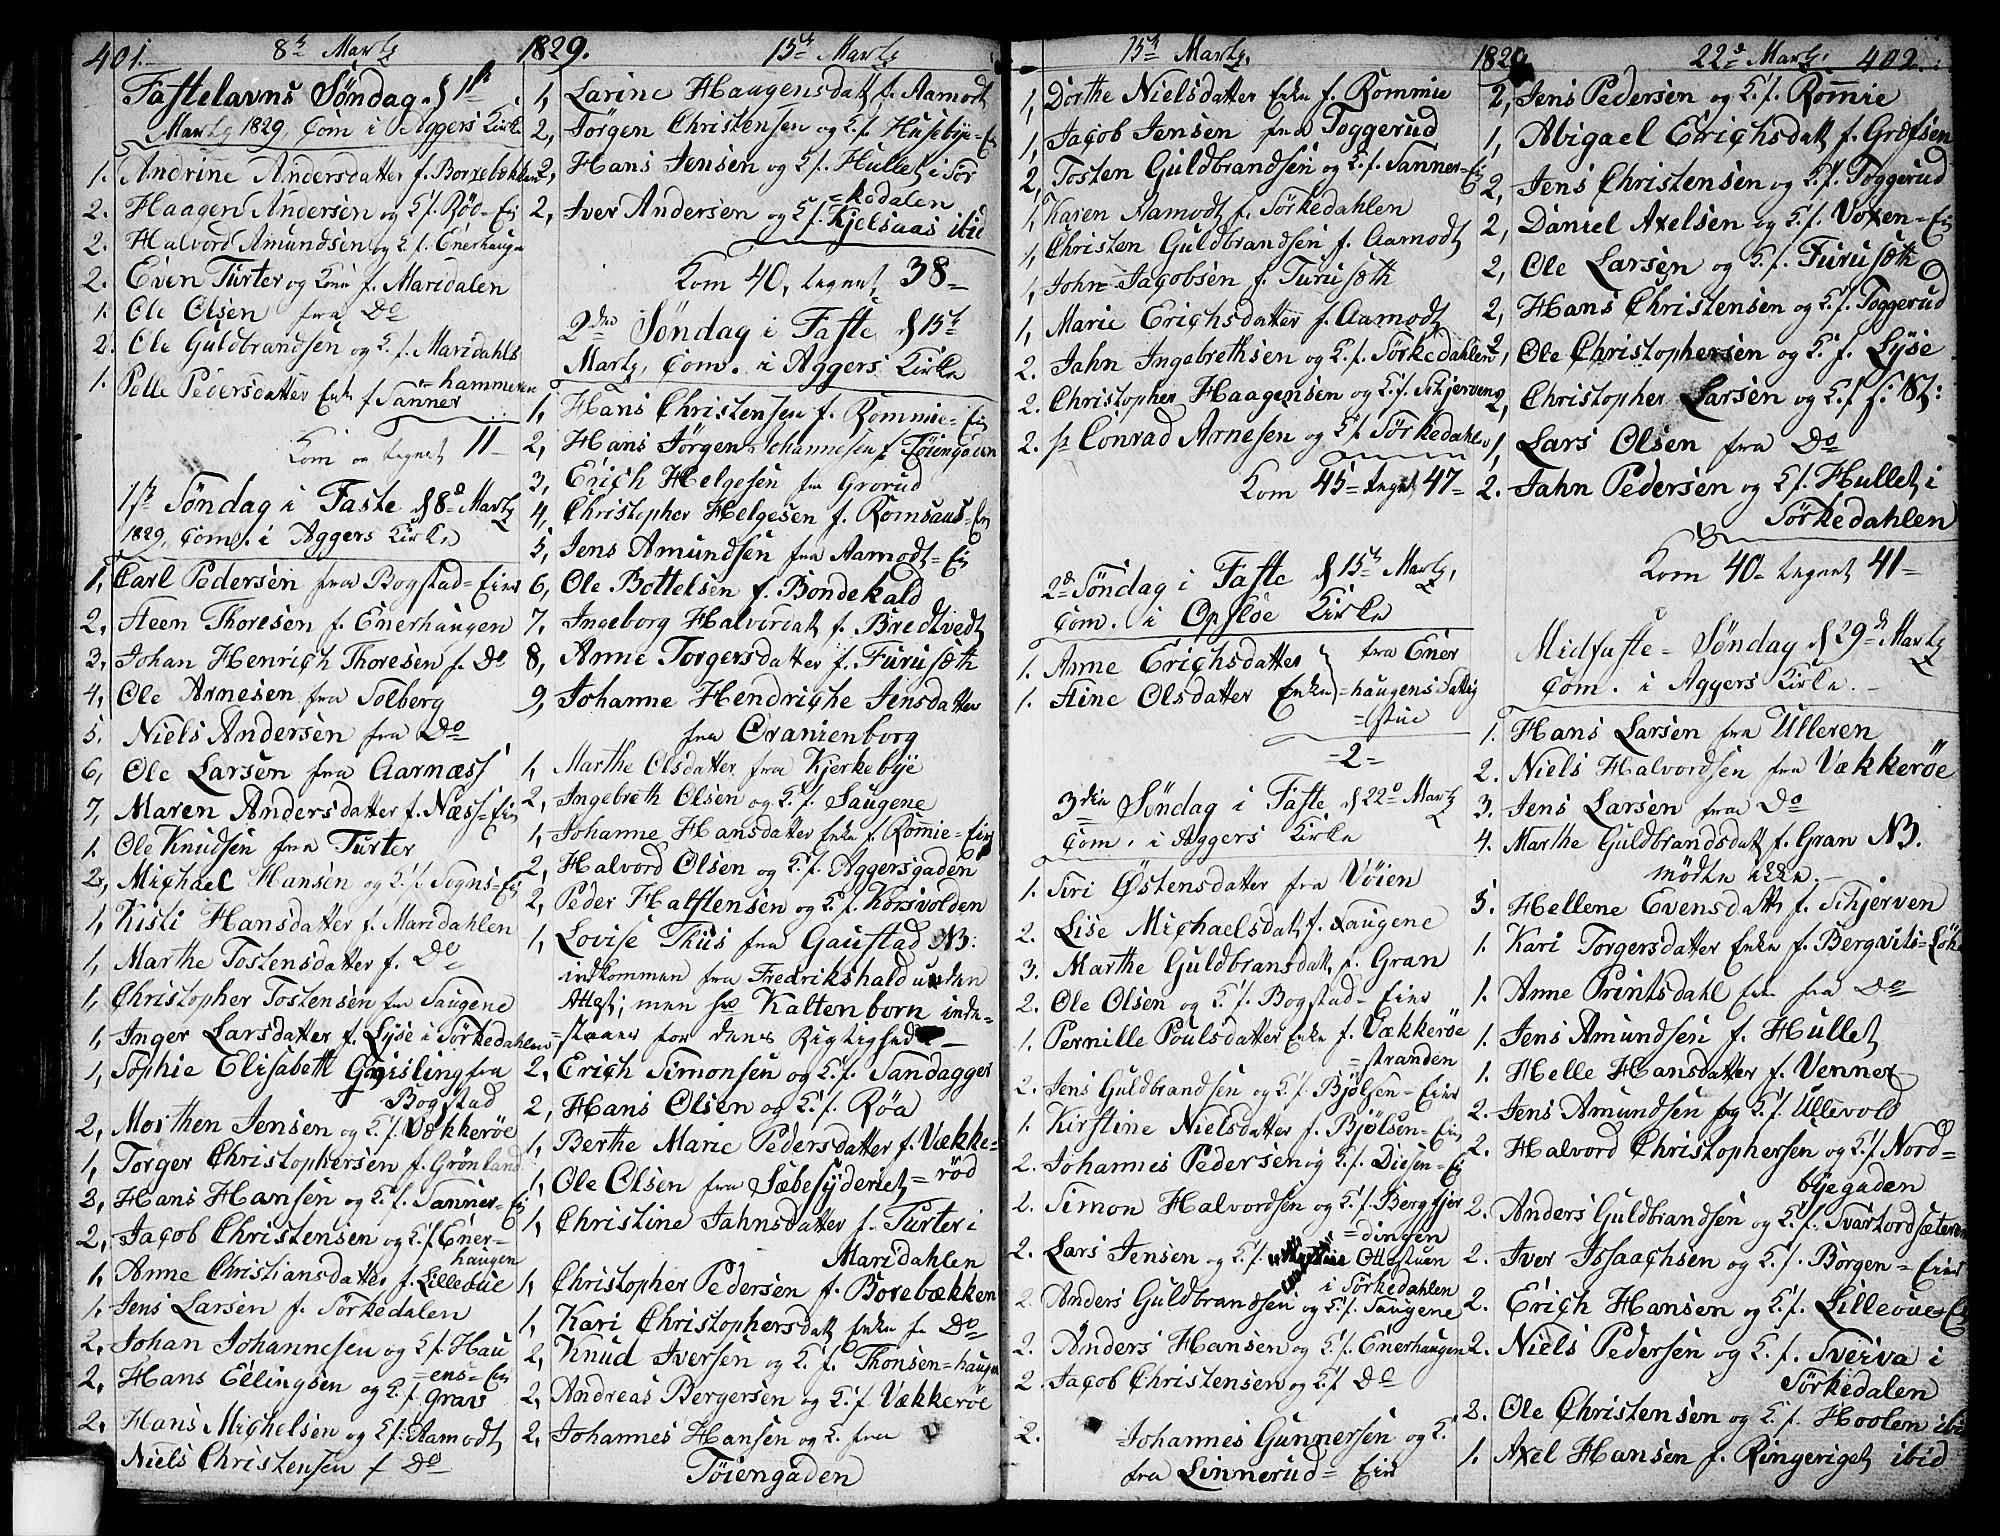 401. 8de Martz 1829. 15de Martz
Fastelavns Søndag d 1ste
Martz 1829, Com i Aggers Kirke
1. Andrine Andersdatter f. Borrebækken
2. Haagen Andersen og K. f. Rød=Ei
2. Halvord Amundsen og K. f. Enerhaugn
2. Even Turter og Kone f. Maridalen
1. Ole Olsen fra Do
2. Ole Guldbrandsen og K. f. Maridahls
=hammeren
1. Pelle Pedersdatter Enke f Sanner
Kom og tegnet 11
1ste Søndag i Faste d 8de Martz
1829, Com. i Aggers Kirke
1, Carl Pedersen fra Bogstad=Eier
2, Steen Thoresen f. Enerhaugen
3, Johan Henrich Thoresen f. Do
4, Ole Arnesen fra Solberg
5. Niels Andersen fra Do
6, Ole Larsen fra Aarnæss
7, Maren Andersdatter f. Næss=Ein
1. Ole Knudsen fra Turter
2, Michael Hansen og K. f. Sogns=Ei
1, Kisti Hansdatter f. Maridahlen
1, Marthe Tostensdatter f. Do
1, Christopher Tostensen fra Saugene
1, Inger Larsdatter f. Lyse i Sørkedahlen
1, Sophie Elisabeth Gjisling fra
Bogstad
2, Morthen Jensen og K. f. Vækkerøe
1, Torger Christophersen f. Grønland
3, Hans Hansen og K. f. Sanner=Ei
2, Jacob Christensen og K. f. Ener=
haugen
1, Anne Christiansdatter f. Lillevue
1, Jens Larsen f. Sørkedalen
2. Johan Johannesen og K. f. Hau
=ens=Ei
2, Hans Ellingsen og K. f. Grav
2, Hans Michelsen og K. f. Aamodt
Niels Christensen f Do
1, Larine Haagensdatt f. Aamodt
2, Jørgen Christensen og K. f. Husebye=Ei
2, Hans Jensen og K. f. Hullet i Sør
=kedalen
2, Iver Andersen og K. f. Kjelsaas ibid
Kom 40, tegnet 38=
2den Søndag i Faste d 15de
Martz, Com. i Aggers Kirke
1, Hans Christensen f. Rommie=Ei
2, Hans Jørgen Johannesen f Tøiengaden
3, Erich Helgesen fra Grorud
4, Christopher Helgesen f. Romsaas=Ei
5, Jens Amundsen fra Aamodt=Ei
6, Ole Bottelsen f. Bondekald
7. Ingeborg Halvordatt f. Bredtvedt
8, Anne Torgersdatter f. Furusæth
9, Johanne Hendriche Jensdatter
fra Oranienborg
1, Marthe Olsdatter fra Kjerkebye
2, Ingebreth Olsen og K. f. Saugene
1, Johanne Hansdatter Enke f. Rommie=Ei
2, Halvord Olsen og K. f. Aggersgaden
2, Peder Halstensen og K. f. Korsvolden
1, Lovise Thiis fra Gaustad NB:
indkommen fra Fredrikshald uden
Attest; men hr Kaltenborn inde=
=staaer for denes Rigtighed
2, Erich Simonsen og K. f. Sandagger
2, Hans Olsen og K. f. Røa
1, Berthe Marie Pedersdatter f. Vække=
=rød
1, Ole Olsen fra Sæbesyderiet
1, Christine Jahnsdatter f. Turter i
Maridahlen
1, Christopher Pedersen f. Borebækken
1, Kari Christophersdatt Enke fra Do
2, Knud Iversen og K. f. Thonsen=haugen
2, Andreas Bergersen og K. f. Vækkerøe
2, Johannes Hansen og K. fra
Tøiengaden
15de Martz. 1829 22de Martz. 402.
1, Dorthe Nielsdatter Enke f. Rommie
1, Jacob Jensen fra Toggerud
2, Tosten Guldbrandsen og K. f. Sanner=Ei
1, Karen Aamodt f. Sørkedahlen
1, Christen Guldbrandsen f. Aamodt
1, John Jacobsen f. Furusæth
1, Marie Erichsdatter f. Aamodt
2. Jahn Ingebrethsen og K. f. Sørkedahlen
2. Christopher Haagensen og K. f. Skjerven
2. Conrad Arnesen og K. f. Sørkedahlen
Kom 45= tegnet 47=
2de Søndag i Faste d 15de Martz,
Com. i Opsloe Kirke
1. Anne Erichsdatter } fra Ener
1. Stine Olsdatter Enke } =haugens Fattig
=stue
=2=
3die Søndag i Faste d 22de Martz
Com. i Aggers Kirke
1. Siri Østensdatter fra Vøien
2. Lise Michaelsdatt f. Saugene
3. Marthe Guldbransdatt f. Gran
2. Ole Olsen og K. f. Bogstad=Eier
1. Pernille Poulsdatter Enke f. Vækkerøe
=stranden
2. Jens Guldbrandsen og K. f. Bjølsen=Eier
1. Kirstine Nielsdatter f. Bjølsen=Ei
2. Johannes Pedersen og K. f. Diesen=Ei
2. Simon Halvordsen og K. f. Bergfjer
=dingen
2. Lars Jensen og K. f. Ottestuen
i Sørkedahlen
2. Anders Guldbrandsen og K. f. Saugene
2. Anders Hansen og K. f. Enerhaugen
2. Jacob Christensen og K. f. Do
2. Johannes Gunnersen og K.
fra Linnerud=Eier
2, Jens Pedersen og K. f. Rommie
1, Abigael Erichsdatt f. Græfsen
2, Jens Christensen og K. f. Toggerud
2, Daniel Axelsen og K. f. Voxen=Ei
2, Ole Larsen og K. f. Furusæth
2, Hans Christensen og K. f. Toggerud
2, Ole Christophersen og K. f. Lyse
2, Christopher Larsen og K. f. St:
1, Lars Olsen fra Do
2. Jahn Pedersen og K. f. Hullet i
Sørkedahlen
Kom 40= tegnet 41=
Midfaste=Søndag d 29de Martz
Com. i Aggers Kirke.
1. Hans Larsen fra Ulleren
2. Niels Halvordsen fra Vækkerøe
3. Jens Larsen fra Do
4. Marthe Guldbrandsdatt f. Gran NB.
mødte ikke.
5. Hellene Evensdatt f. Skjerven
1. Kari Torgersdatter Enke f. Bergvits=Løke
1. Anne Printsdahl Enke fra Do
1. Jens Amundsen f. Hullet
1. Helle Hansdatter f. Venner
2. Jens Amundsen og K. f. Ullevold
2. Halvord Christophersen og K. f. Nord=
byegaden
2. Anders Guldbrandsen og K. f. Svartordsæteren
2. Iver Issaachsen og K. f. Borgen=Eier
2. Erich Hansen og K. f. Lillevue=Ei
2. Niels Pedersen og K. f. Sverva i
Sørkedalen
2. Ole Christensen og K. f. Hoolen ibid
1. Axel Hansen f. Ringeriget ibid